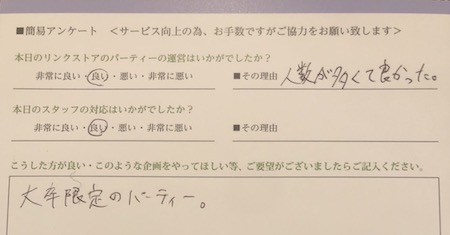 ■簡易アンケート　＜サービス向上の為、お手数ですがご協力をお願い致します＞
本日のリンクストアのパーティーの運営はいかがでしたか？
非常に良い・良い・悪い・非常に悪い　■その理由　人数が多くて良かった。
本日のスタッフの対応はいかがでしたか？
非常に良い・良い・悪い・非常に悪い　■その理由
こうした方が良い・このような企画をやってほしい等、ご要望がございましたらご記入ください。
大卒限定のパーティー。